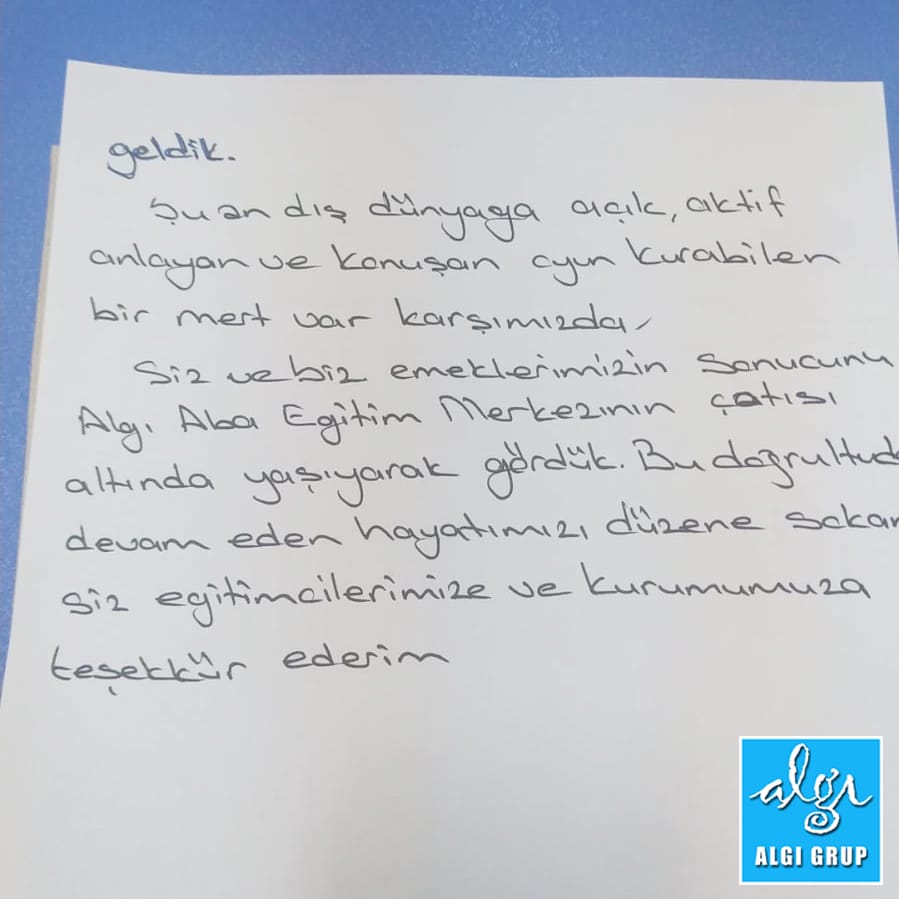 geldik.
Şu an dış dünyaga açık, aktif
anlayan ve konuşan oyun kurabilen
bir mert var karşımızda,
Siz ve biz emeklerimizin sonucunu
Algı Aba Egitim Merkezının çatısı
altında yaşıyarak gördük. Bu doğrultud
devam eden hayatımızı düzene sokan
siz egitimcilerimize ve kurumumuza
teşekkür ederim
algı
ALGI GRUP